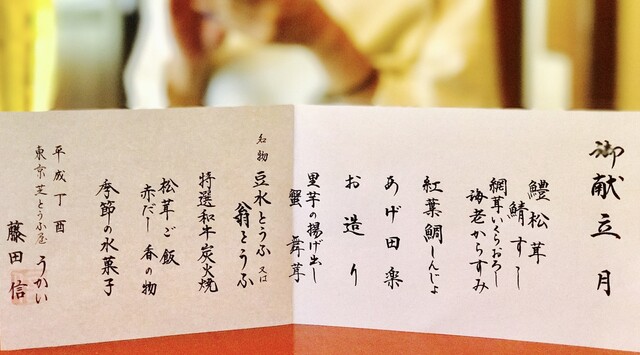 御献立 月
鱧松茸
鯖すし
網茸いくらおろし
海老からすみ
紅葉鯛しんじょ
あげ田楽
お造り
里芋の揚げ出し
蟹 舞茸
名物 豆水とうふ 又は
翁とうふ
特選和牛炭火焼
松茸ご飯
赤だし 香の物
季節の水菓子
平成丁酉
東京芝とうふ屋うかい
藤田信